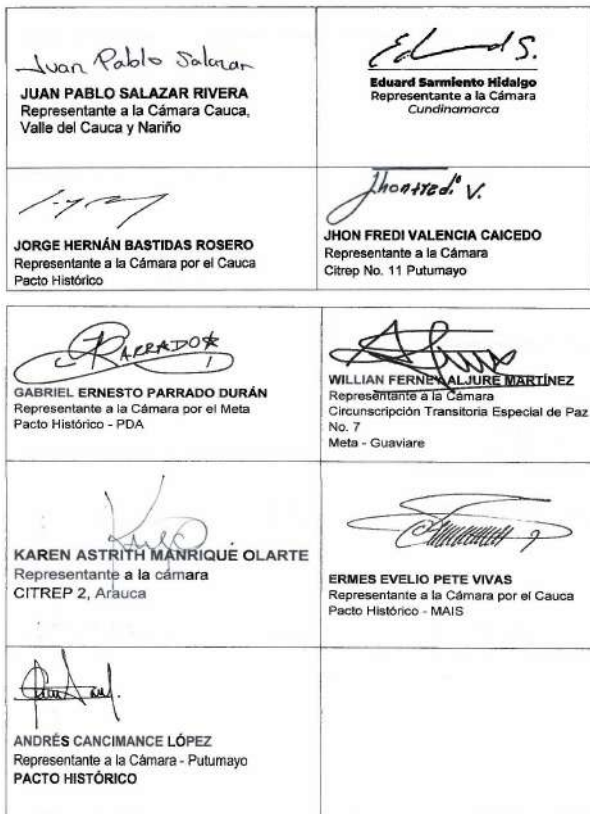 Juan Pablo Salazar
JUAN PABLO SALAZAR RIVERA
Representante a la Cámara Cauca,
Valle del Cauca y Nariño
Ed S.
Eduard Sarmiento Hidalgo
Representante a la Cámara
Cundinamarca
JORGE HERNÁN BASTIDAS ROSERO
Representante a la Cámara por el Cauca
Pacto Histórico
Jhonfredi V.
JHON FREDI VALENCIA CAICEDO
Representante a la Cámara
Citrep No. 11 Putumayo
PARRADO
GABRIEL ERNESTO PARRADO DURÁN
Representante a la Cámara por el Meta
Pacto Histórico - PDA
WILLIAN FERNEY ALJURE MARTÍNEZ
Representante a la Cámara
Circunscripción Transitoria Especial de Paz
No. 7
Meta - Guaviare
KAREN ASTRITH MANRIQUE OLARTE
Representante a la cámara
CITREP 2, Arauca
ERMES EVELIO PETE VIVAS
Representante a la Cámara por el Cauca
Pacto Histórico - MAIS
ANDRÉS CANCIMANCE LÓPEZ
Representante a la Cámara - Putumayo
PACTO HISTÓRICO